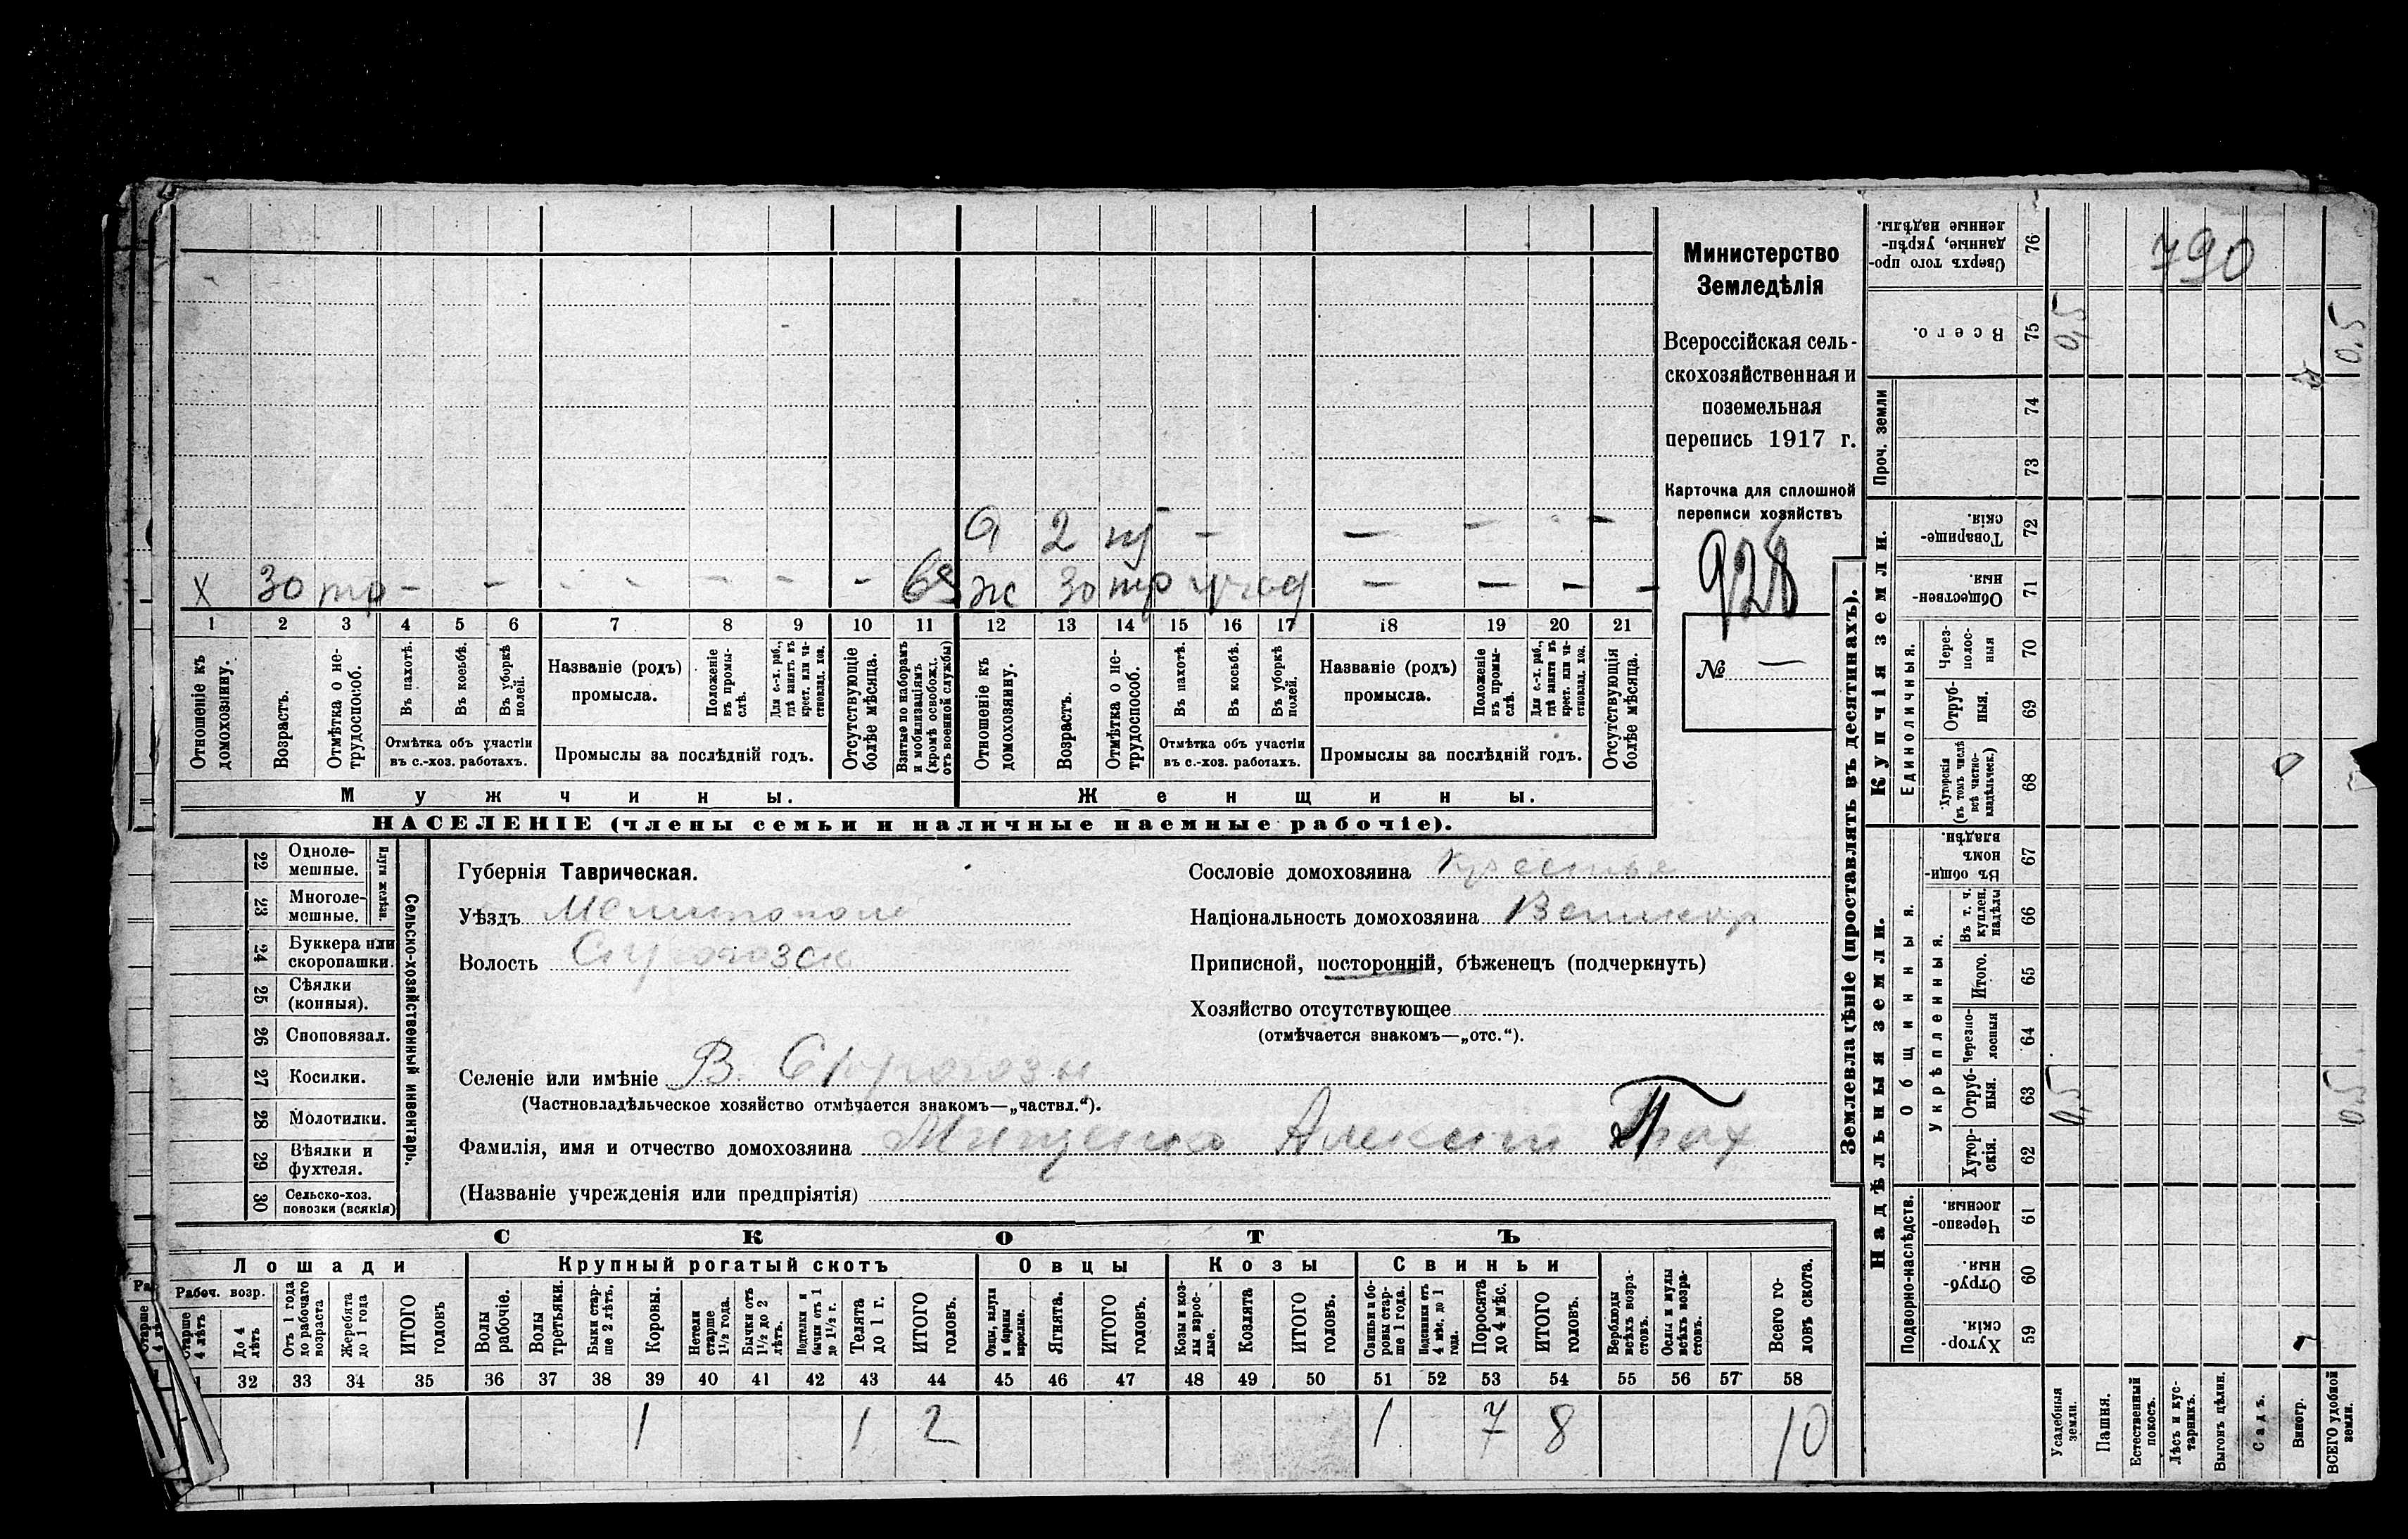 а 2 н/т - - - - -
х 30 тр - - - - - - - вз ж 30 тр - - - -
1 2 3 4 5 6 7 8 9 10 11 12 13 14 15 16 17 18 19 20 21
Отношеніе къ домохозяину.
Возрастъ.
Отмѣтка о нетрудоспособ.
Въ пахотѣ.
Въ косьбѣ.
Въ уборкѣ полей.
Отмѣтка объ участіи
въ с.-хоз. работахъ.
Названіе (родъ)
промысла.
Положеніе въ промыслѣ.
Для с.-х. раб., гдѣ занятъ въ крест. или частновлад. хоз.
Промыслы за послѣдній годъ.
Отсутствующіе болѣе мѣсяца.
Взятые по наборамъ и мобилизаціямъ (кромѣ освобожд. отъ военной службы)
Отношеніе къ домохозяину.
Возрастъ.
Отмѣтка о нетрудоспособ.
Въ пахотѣ.
Въ косьбѣ.
Въ уборкѣ полей.
Отмѣтка объ участіи
въ с.-хоз. работахъ.
Названіе (родъ)
промысла.
Положеніе въ промыслѣ.
Для с.-х. раб., гдѣ занята въ крест. или частновлад. хоз.
Промыслы за послѣдній годъ.
Отсутствующія болѣе мѣсяца.
Мужчины. Женщины.
НАСЕЛЕНІЕ (члены семьи и наличные наемные рабочіе).
Министерство
Земледѣлія
Всероссійская сель-
скохозяйственная и
поземельная
перепись 1917 г.
Карточка для сплошной
переписи хозяйствъ
928
№ —
22 Одноле-
мешные.
23 Многоле-
мешные.
Плуги желѣзн.
24 Буккера или
скоропашки.
25 Сѣялки
(конныя).
26 Сноповязал.
27 Косилки.
28 Молотилки.
29 Вѣялки и
фухтеля.
30 Сельско-хоз.
повозки (всякія)
Сельско-хозяйственный инвентарь.
Губернія Таврическая.
Уѣздъ Мелитопол
Волость
Селеніе или имѣніе В. Сірогозы
(Частновладѣльческое хозяйство отмѣчается знакомъ—„частвл.“).
Фамилія, имя и отчество домохозяина Мищенко Алексей
(Названіе учрежденія или предпріятія)
Сословіе домохозяина крестья
Національность домохозяина Великор
Приписной, посторонній, бѣженецъ (подчеркнуть)
Хозяйство отсутствующее
(отмѣчается знакомъ—„отс.“).
СКОТЪ
Лошади Крупный рогатый скотъ Овцы Козы Свиньи
Рабоч. возр.
Старше 4 лѣтъ
До 4 лѣтъ
Отъ 1 года до рабочаго возраста
Жеребята до 1 года
ИТОГО головъ
Волы рабочіе.
Волы третьяки.
Быки старше 2 лѣтъ.
Коровы.
Нетели старше 1½ года.
Бычки отъ 1½ до 2 лѣтъ.
Подтелки и бычки отъ 1 до 1½ г.
Телята до 1 г.
ИТОГО головъ.
Овцы, валухи и бараны взрослые.
Ягнята.
ИТОГО головъ.
Козы и козлы взрослые.
Козлята
ИТОГО головъ.
Свиньи и боровы старше 1 года.
Подсвинки отъ 4 мѣс. до 1 года.
Поросята до 4 мѣс.
ИТОГО головъ.
Верблюды всѣхъ возрастовъ.
Ослы и мулы всѣхъ возрастовъ.
Всего головъ скота.
32 33 34 35 36 37 38 39 40 41 42 43 44 45 46 47 48 49 50 51 52 53 54 55 56 57 58
1 1 2 1 7 8 10
Землевладѣніе (проставлять въ десятинахъ).
Надѣльныя земли. Купчія земли. Проч. земли
Подворно-наслѣдств.
Общинныя.
Укрѣпленныя.
Единоличныя.
59 Хуторскія.
60 Отрубныя.
61 Черезполосныя.
62 Хуторскія.
63 Отрубныя.
64 Черезполосныя
65 Итого.
66 Въ т. ч. куплен. надѣлы
67 Въ общинномъ владѣн.
68 Хуторскія (въ томъ числѣ всѣ частновладѣльческ.)
69 Отрубныя.
70 Черезполосныя
71 Общественныя.
72 Товарищескія.
73
74
75 Всего.
76 Сверхъ того проданные, укрѣпленные надѣлы.
790
0,5 0,5
0,5 0,5
Усадебныя земли.
Пашня.
Естественный покосъ.
Лѣсъ и кустарникъ.
Выгонъ цѣлин.
Садъ.
Виногр.
ВСЕГО удобной земли.